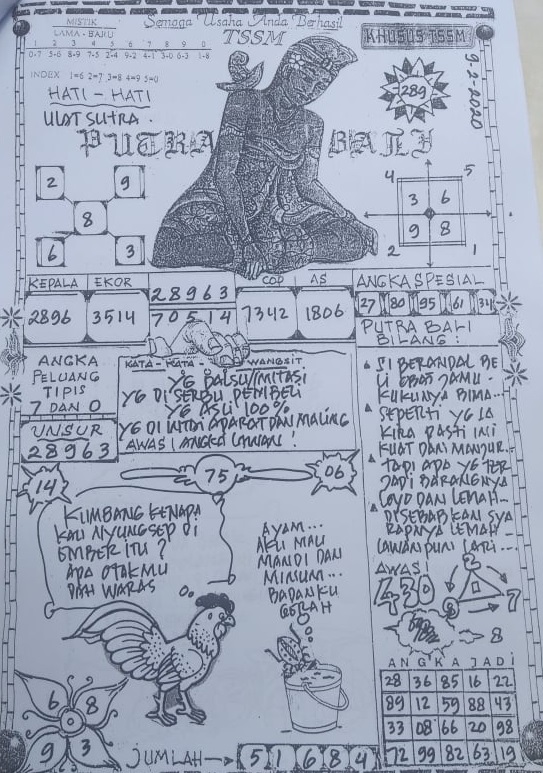 Semoga Usaha Anda Berhasil
TSSM
KHUSUS TSSM
MISTIK
LAMA - BARU
1 2 3 4 5 6 7 8 9 0
0-7 5-6 8-9 7-5 2-4 9-2 4-1 3-0 6-3 1-8
INDEX 1=6 2=7 3=8 4=9 5=0
HATI - HATI
ULAT SUTRA.
289
9-2-2020
PUTRA BALI
2 9
8
6 3
4 5
3 6
9 8
2 1
KEPALA EKOR
2896 3514
28963
70514
COP AS
7342 1806
ANGKA SPESIAL
27 80 95 61 34
PUTRA BALI
BILANG :
SI BERANDAL BE
LI OBAT JAMU.
KUKUNYA BIMA...
SEPERTI YG IA
KIRA PASTI INI
KUAT DAN MANJUR..
TAPI APA YG TER
JADI BARANGNYA
LOYO DAN LEMAH...
DISEBABKAN SYA
RAFNYA LEMAH
LAWANPUN LARI...
ANGKA
PELUANG
TIPIS
7 DAN 0
UNSUR
28963
KATA - KATA WANGSIT
YG PALSU/IMITASI
YG DI SERBU PEMBELI
YG ASLI 100%
YG DI INTAI APARAT DAN MALING
AWAS! ANGKA LAWAN!
14
75
06
KUMBANG KENAPA
KAU NYUNGSEP DI
EMBER ITU?
APA OTAKMU
DAH WARAS
AYAM...
AKU MAU
MANDI DAN
MINUM...
BADANKU
GERAH
AWAS!
430
2
8 7
8
ANGKA JADI
28 36 85 16 22
89 12 59 88 43
33 08 66 20 98
72 99 82 63 19
6 8
9 3
JUMLAH → 5 1 6 8 4